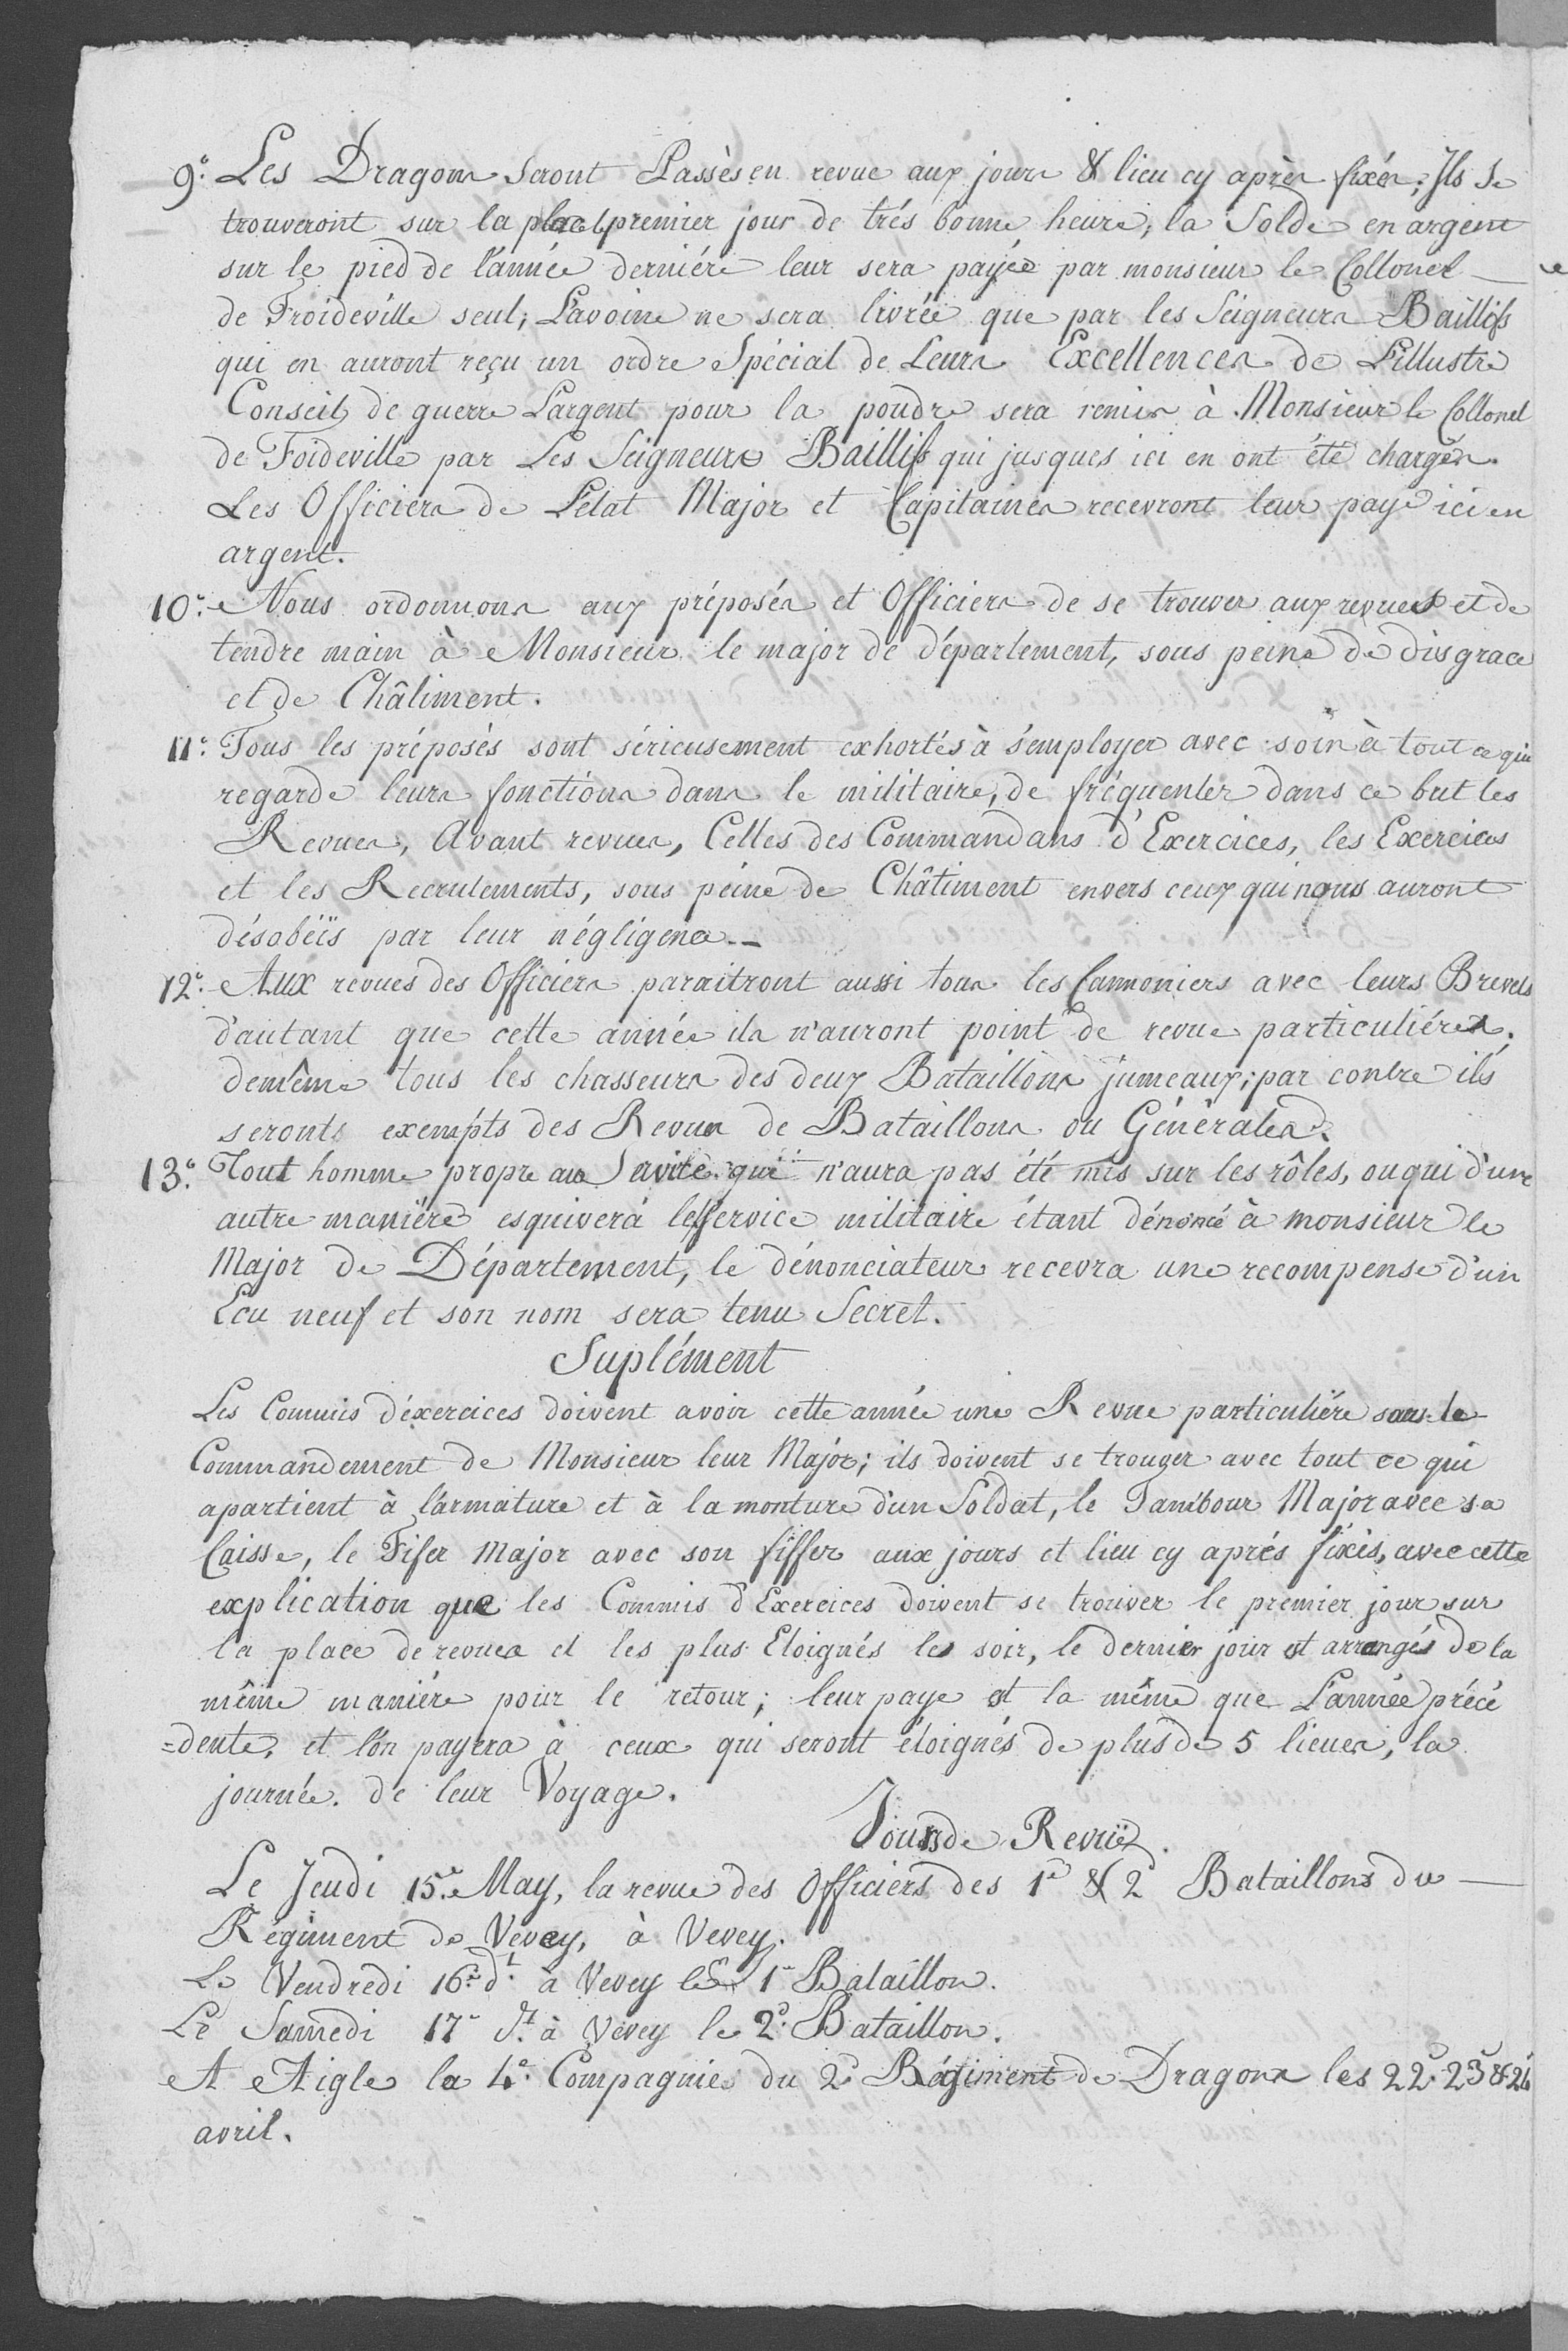 9.° Les Dragons seront Passès en revue aux jours & lieu cy après fixés; Ils se
trouveront sur la place le premier jour de trés bonne heure, la Solde en argent
sur le pied de l'année derniére leur sera payée par monsieur le Collonel
de Froideville seul; L'avoine ne sera livrée que par les Seigneurs Baillifs
qui en auront reçu un ordre Spécial de Leurs Excellences de L'illustre
Conseil de guerre L'argent pour la poudre sera remis à Monsieur le Collonel
de Foideville par Les Seigneurs Baillifs qui jusques ici en ont été chargés.
Les Officiers de L'état Major et Capitaines recevront leur paye ici en
argent.
10.° Nous ordonnons aux préposés et Officiers de se trouver aux revues et de
tendre main à Monsieur le major de département, sous peine de disgrace
et de Châtiment.
11.° Tous les préposés sont sérieusement exhortés à s'employer avec soin à tout ce qui
regarde leurs fonctions dans le militaire, de fréquenter dans ce but les
Revues, Avant revues, Celles des Commandans d'Exercices, les Exercices
et les Recrutements, sous peine de Châtiment envers ceux qui nous auront
désobéïs par leur négligence. _
12.° Aux revues des Officiers paraitront aussi tous les Cannoniers avec leurs Brevets
d'autant que cette année ils n'auront point de revue particuliére.
demême tous les chasseurs des deux Bataillons jumeaux; par contre ils
seronts exempts des Revues de Bataillons ou Générales.
13.° Tout homme propre au Service qui n'aura pas été mis sur les rôles, ou qui d'une
autre maniére esquivera le service militaire étant dénoncé à monsieur le
Major de Département, le dénonciateur recevra une recompense d'un
Ecu neuf et son nom sera tenu Secret.
Suplément
Les Commis d'éxercices doivent avoir cette année une Revue particuliére sous le
Commandement de Monsieur leur Major; ils doivent se trouver avec tout ce qui
apartient à l'armature et à la monture d'un Soldat, le Tambour Major avec sa
Caisse, le Fifer Major avec son fiffer aux jours et lieu cy aprés fixés, avec cette
explication que les Commis d'Exercices doivent se trouver le premier jour sur
la place de revues et les plus Eloignés le soir, le dernier jour et arrangés de la
même maniére pour le retour; leur paye et la même que L'année précé
=dente, et l'on payera à ceux qui seront éloignés de plus de 5 lieues, la
journée de leur Voyage.
Jours de Revuë.
Le Jeudi 15.e May, la revue des Officiers des 1er & 2e Bataillons du
Régiment de Vevey, à Vevey.
Le Vendredi 16.e dt. à Vevey le 1er Bataillon.
Le Samedi 17e dt. à Vevey le 2e. Bataillon.
A Aigle la 4.e Compagnie du 2e Régiment de Dragons les 22. 23 & 24
avril.